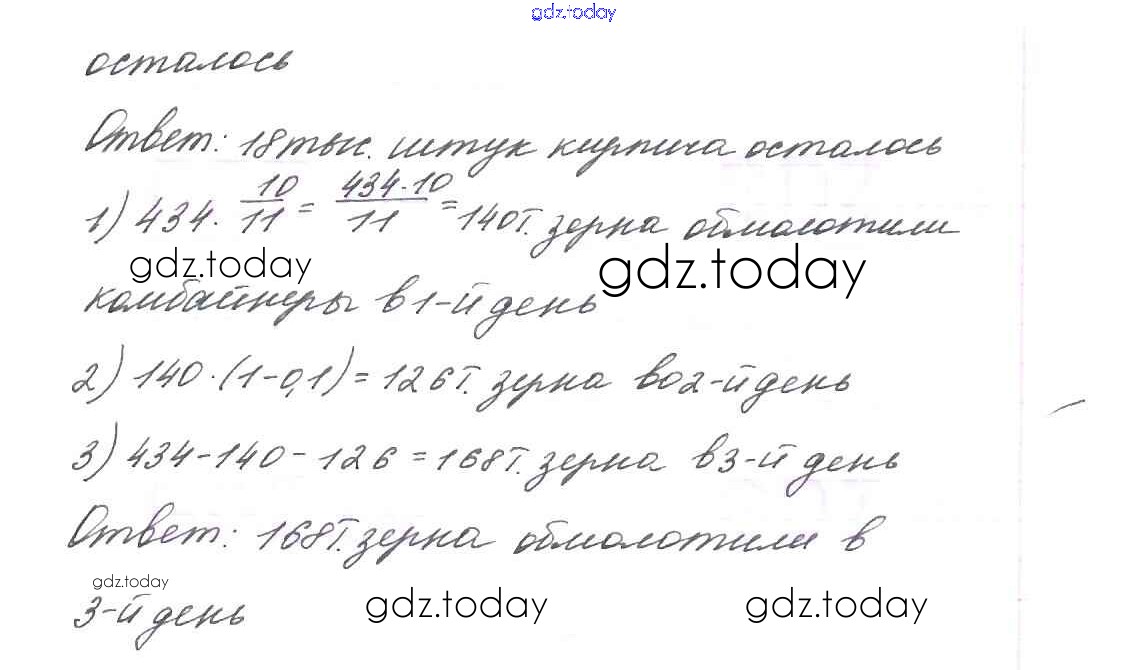 gdz.today
осталось
Ответ: 18 тыс. штук кирпича осталось
1) 434 · 10/11 = 434·10/11 = 140т. зерна обмолотили
gdz.today gdz.today
комбайнеры в 1-й день
2) 140·(1-0,1) = 126т. зерна во 2-й день
3) 434-140-126 = 168т. зерна в 3-й день
Ответ: 168т. зерна обмолотили в
gdz.today
3-й день
gdz.today gdz.today